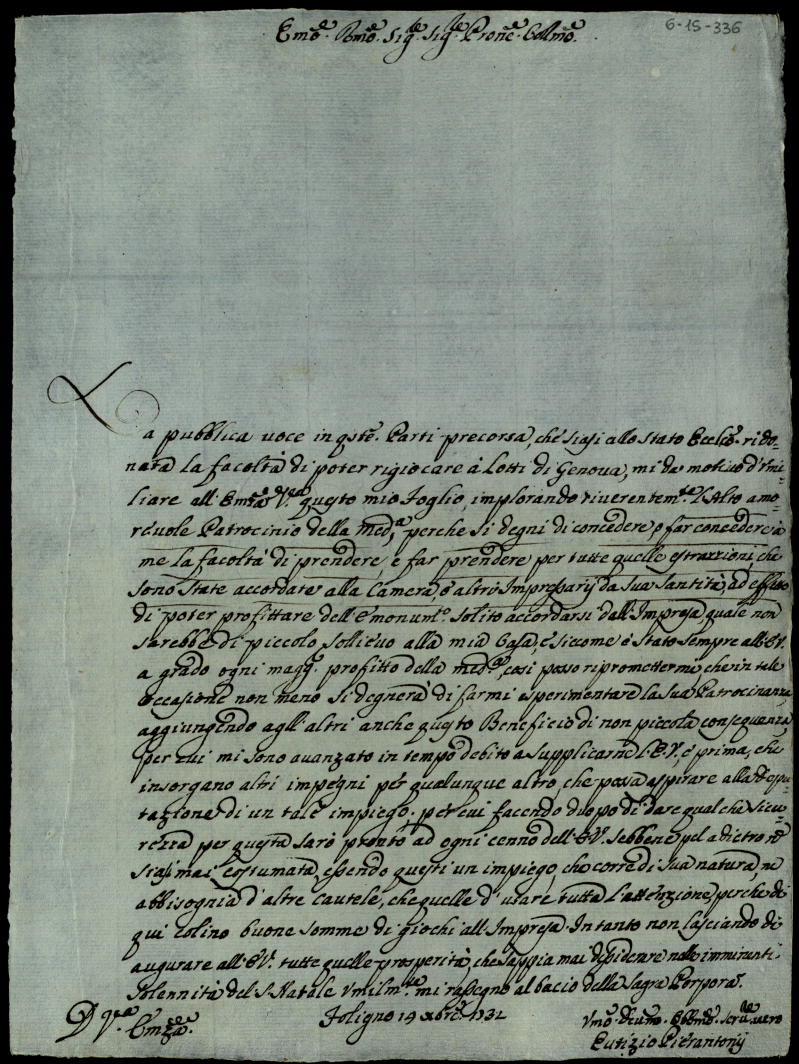 6-15-336
Emo͞. Rmo͞. Sig.re Sig.re Prone͞. Collmo͞.
La pubblica voce in qste͞. Parti precorsa, che siasi allo Stato Eccleco͞. rido-
nata la facoltà di poter rigiocare à Lotti di Genova, mi da motivo d'Umi-
liare all'Emza͞ V.ra questo mio foglio, implorando riverentem.te l'Alto amo-
revole Patrocinio della med.a, perche si degni di concedere, o far concedere à
me la facoltà di prendere, e far prendere per tutte quelle estrazzioni, che
sono State accordate alla Camera, ò altri Impressarij da Sua Santità, ad effetto
di poter profittare dell'Emonum.to solito accordarsi dall'Impresa, quale non
sarebbe di piccolo sollievo alla mia Casa, e siccome è stato sempre all'E.V.
a grado ogni magg.r profitto della med.a, così posso ripromettermi, che in tale
occasione non meno si degnerà di farmi esperimentare la Sua Patrocinanza,
aggiungendo agli altri anche questo Beneficio di non piccola conseguenza,
per cui mi sono avanzato in tempo debito a supplicarne l'E.V., e prima, che
insorgano altri impegni per qualunque altro, che possa aspirare alla Depu-
tazione di un tale impiego, per cui facendo duopo di dare qualche sicu-
rezza per questa sarò pronto ad ogni cenno dell'E.V. sebbene pel adietro nō
siasi mai costumata, essendo questi un impiego, che corre di sua natura, ne
abbisognia d'altre cautele, che quelle d'usare tutta l'attenzione, perche di
qui colino buone somme di giochi all'Impresa. Intanto non lasciando di
augurare all'E.V. tutte quelle prosperità, che sappia mai desiderare nelle imminenti
Solennità del S. Natale Umilm.te mi rassegno al bacio della Sagra Porpora.
D V.ra Emza͞.
Foligno 14 Xbre͞ 1731
Umo͞. Divmo͞. Obblmo͞. Serv.re vero
Eutizio Pierantonij